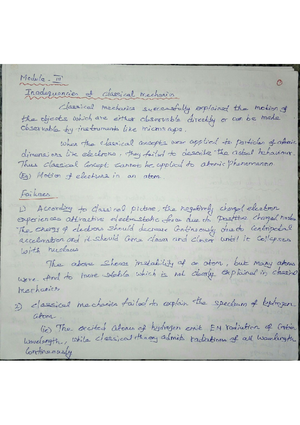 Module - III
Inadequacies of classical mechanics
Classical mechanics successfully explained the motion of
the objects which are either observable directly or can be made
observable by instruments like microscope.
When the classical concepts were applied to particles of atomic
dimensions like electrons. They failed to the actual behaviour.
Thus classical concept cannot be applied to atomic phenomenon
(Eg) Motion of electrons in an atom.
Failures
1) According to classical picture, the negatively charged electron
experiences attractive electrostatic force due to positive charged nucleus
The energy of electron should decrease continuously due to centripetal
acceleration and it should come closer and closer until it collapses
with nucleus
The above shows instability of an atom, but many atoms
were find to more stable which is not clearly explained in classical
mechanics
2) classical mechanics failed to explain the spectrum of hydrogen
atom.
The excited atom of hydrogen emit EM radiation of certain
wavelength, while classical theory admits radiations of all wavelength
continuously